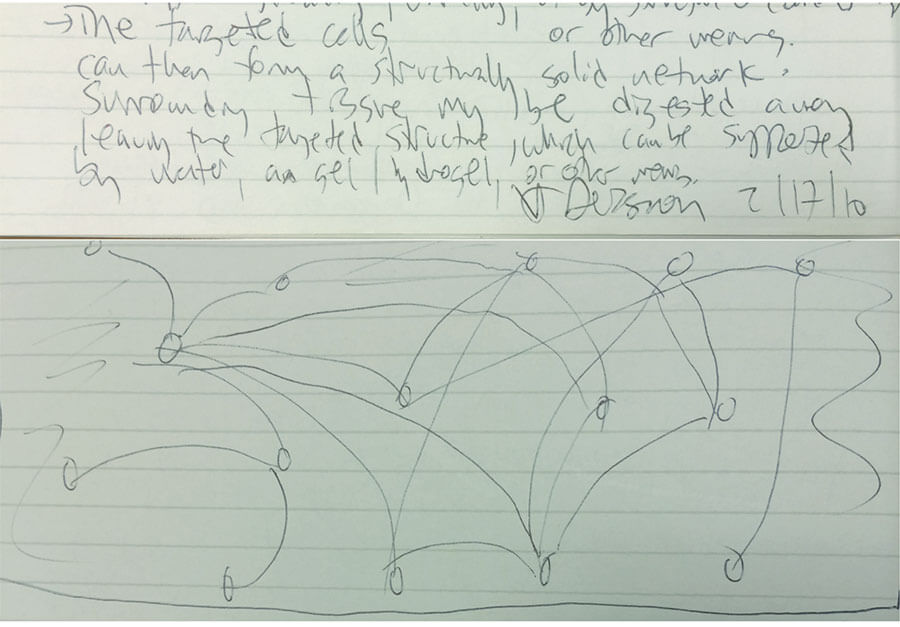 →The targeted cells or other means.
can then form a structurally solid network.
Surroundng tissue may be digested away
leaving the targeted structure, which can be supported
by water, an gel/hydrogel, or other means.
2/17/10